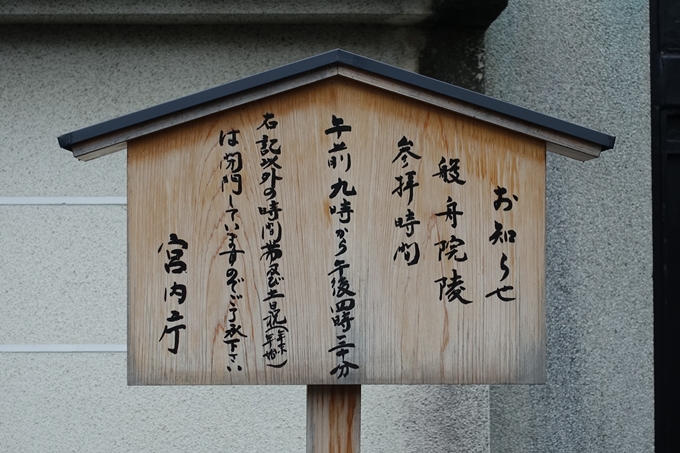 お知らせ
般舟院陵
参拝時間
午前九時から午後四時三十分
右記以外の時間帯及び土日祝(年末年始)
は閉門していますのでご了承下さい
宮内庁